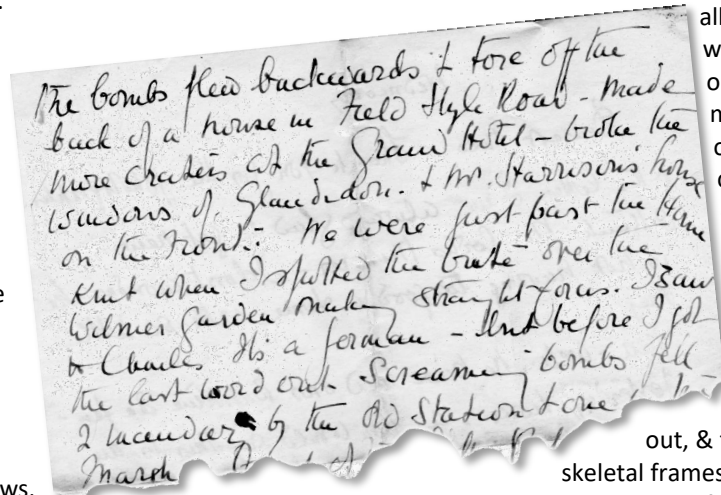 The bombs flew backwards & tore off the
back of a house in Field Style Road - made
more craters at the Grand Hotel - broke the
windows of & Mr. Harrison's house
on the Front. We were just past the Home
Knit when I spotted the brute over the
Wilmer Garden making straight for us. I
to Charles It's a German - And before I got
the last word out Screaming bombs fell
2 incendiary by the Old Station & one
Marsh
all
w
o
e
out, &
skeletal frames
ws.